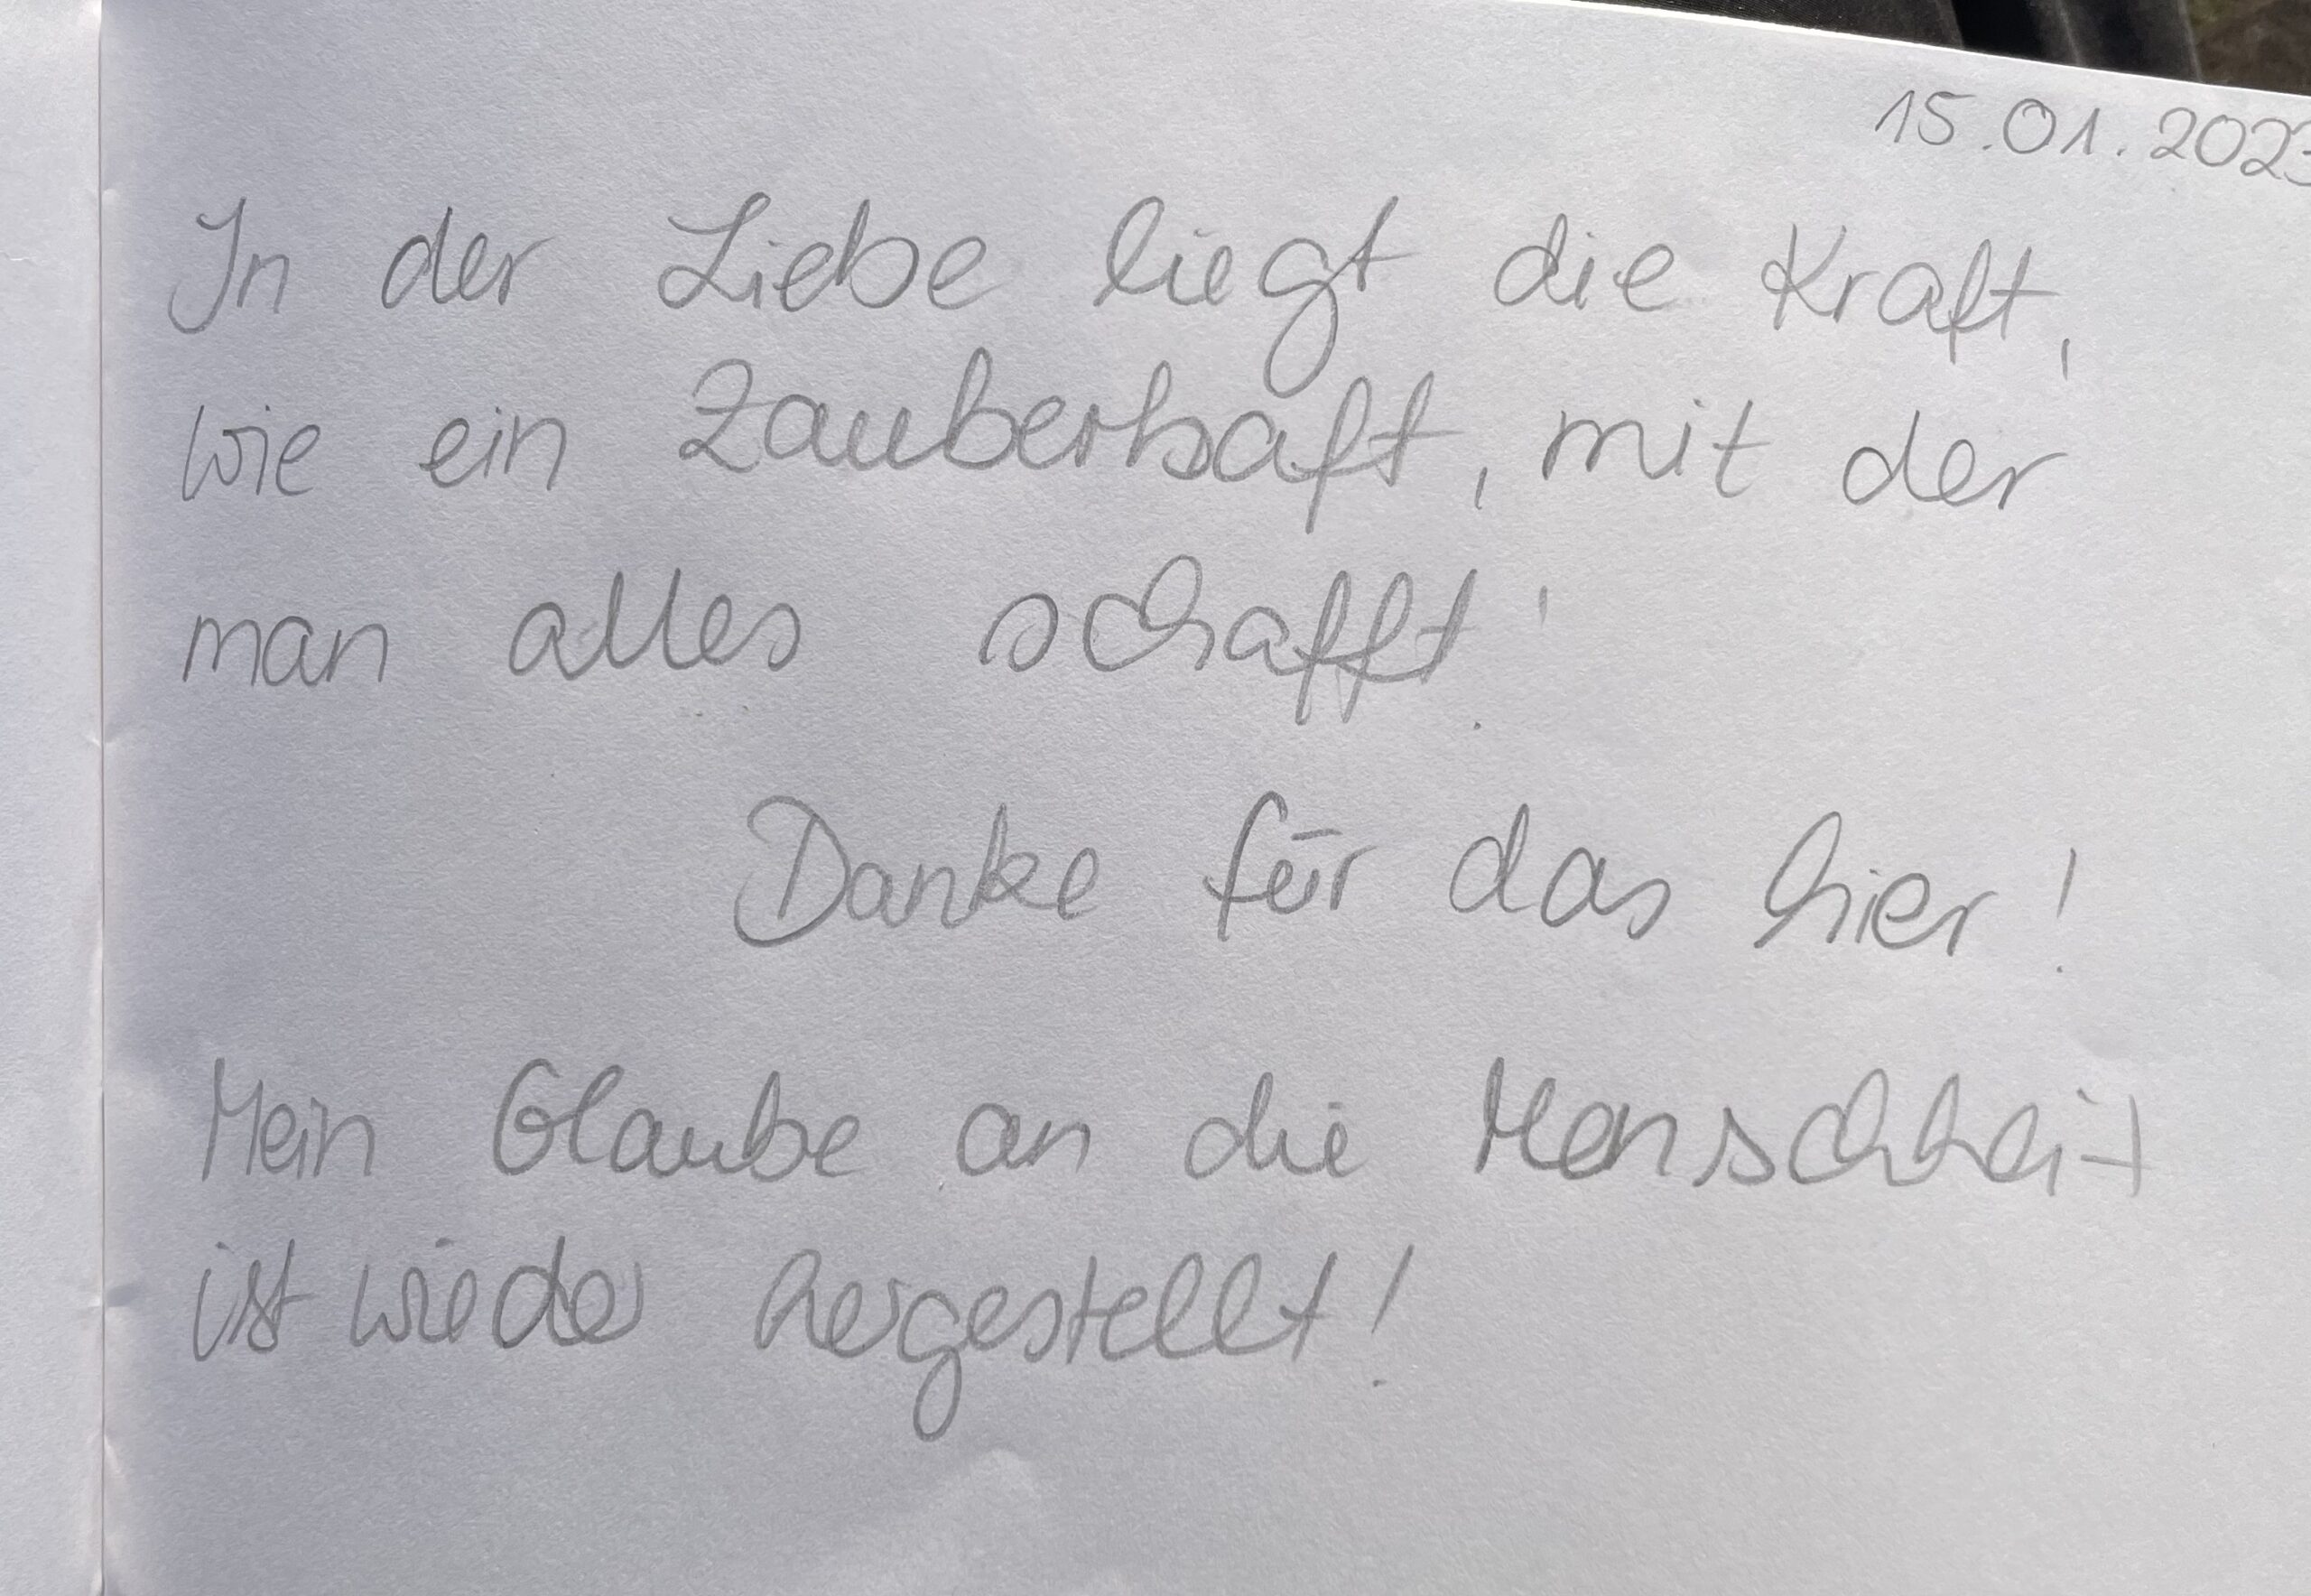 15.01.2023
In der Liebe liegt die Kraft,
wie ein Zauberhaft, mit der
man alles schafft!
Danke für das hier!
Mein Glaube an die Menschheit
ist wieder hergestellt!